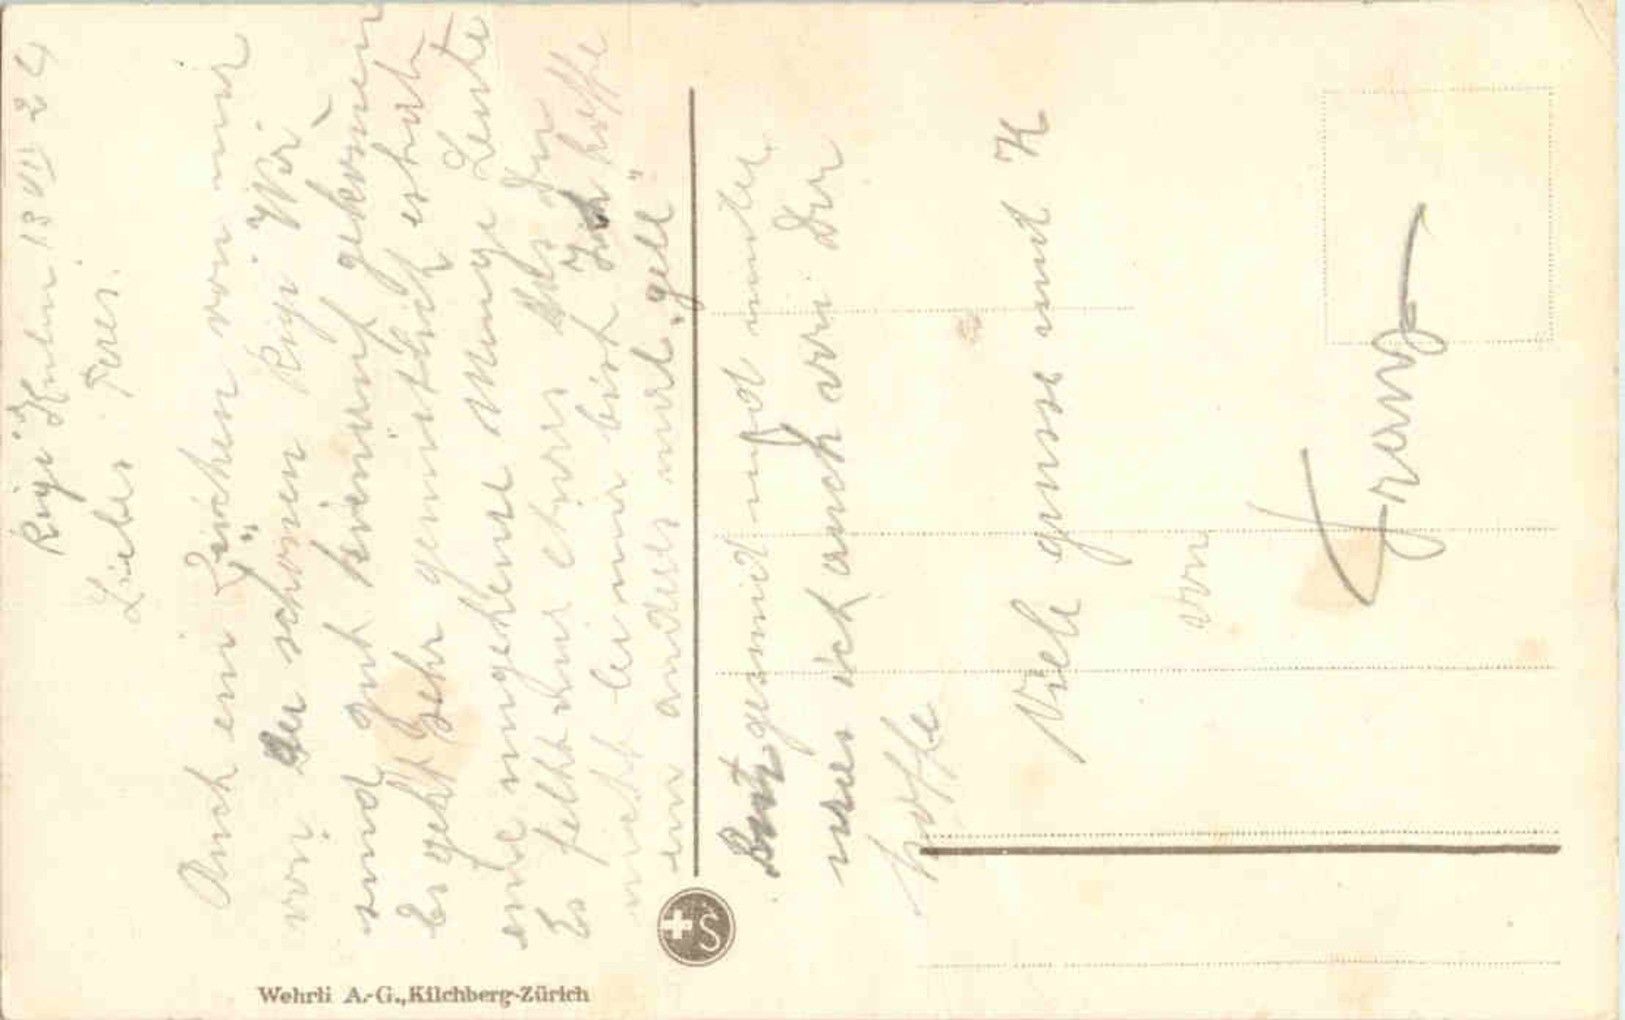 Rigi Kulm 13 VII 24
Liebes
Auch ein Zeichen von mir
von der schönen Rigi Wir
sind gut hinauf gekommen
Es geht sehr gemütlich es hat
eine ungeheure Menge Leute
Es fehlt nur etwas das Du
nicht bei mir bist Ich hoffe
ein anderes mal "gell"
gesund und munter
was ich auch von Dir
hoffe
Viele grüsse und K
von
Franz
Wehrli A.-G., Kilchberg-Zürich
S